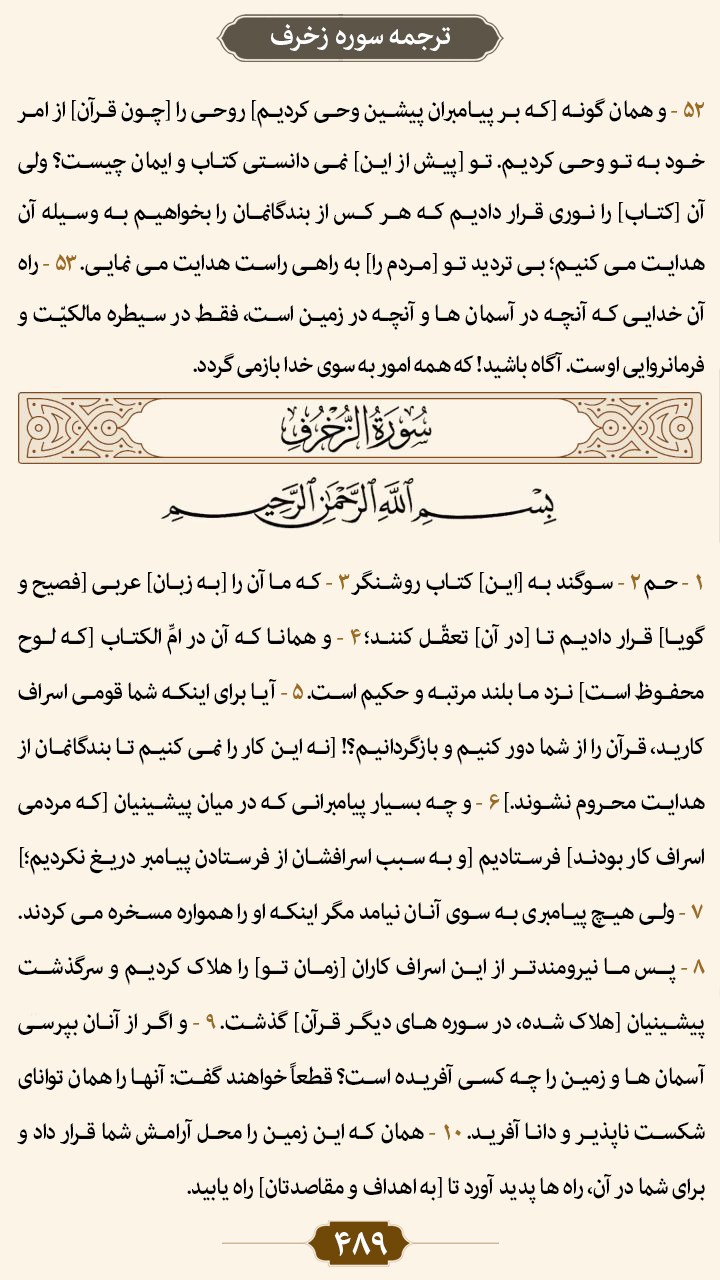 ترجمه سوره زخرف
۵۲ - و همان گونه [که بر پیامبران پیشین وحی کردیم] روحی را [چون قرآن] از امر
خود به تو وحی کردیم. تو [پیش از این] نمی دانستی کتاب و ایمان چیست؟ ولی
آن [کتاب] را نوری قرار دادیم که هر کس از بندگانمان را بخواهیم به وسیله آن
هدایت می کنیم؛ بی تردید تو [مردم را] به راهی راست هدایت می نمایی. ۵۳ - راه
آن خدایی که آنچه در آسمان ها و آنچه در زمین است، فقط در سیطره مالکیّت و
فرمانروایی اوست. آگاه باشید! که همه امور به سوی خدا بازمی گردد.
سُورَةُ الزُّخْرُفِ
بِسْمِ اللَّهِ الرَّحْمَٰنِ الرَّحِيمِ
۱ - حم ۲ - سوگند به [این] کتاب روشنگر ۳ - که ما آن را [به زبان] عربی [فصیح و
گویا] قرار دادیم تا [در آن] تعقّل کنند؛ ۴ - و همانا که آن در امِّ الکتاب [که لوح
محفوظ است] نزد ما بلند مرتبه و حکیم است. ۵ - آیا برای اینکه شما قومی اسراف
کارید، قرآن را از شما دور کنیم و بازگردانیم؟! [نه این کار را نمی کنیم تا بندگانمان از
هدایت محروم نشوند.] ۶ - و چه بسیار پیامبرانی که در میان پیشینیان [که مردمی
اسراف کار بودند] فرستادیم [و به سبب اسرافشان از فرستادن پیامبر دریغ نکردیم؛]
۷ - ولی هیچ پیامبری به سوی آنان نیامد مگر اینکه او را همواره مسخره می کردند.
۸ - پس ما نیرومندتر از این اسراف کاران [زمان تو] را هلاک کردیم و سرگذشت
پیشینیان [هلاک شده، در سوره های دیگر قرآن] گذشت. ۹ - و اگر از آنان بپرسی
آسمان ها و زمین را چه کسی آفریده است؟ قطعاً خواهند گفت: آنها را همان توانای
شکست ناپذیر و دانا آفرید. ۱۰ - همان که این زمین را محل آرامش شما قرار داد و
برای شما در آن، راه ها پدید آورد تا [به اهداف و مقاصدتان] راه یابید.
۴۸۹